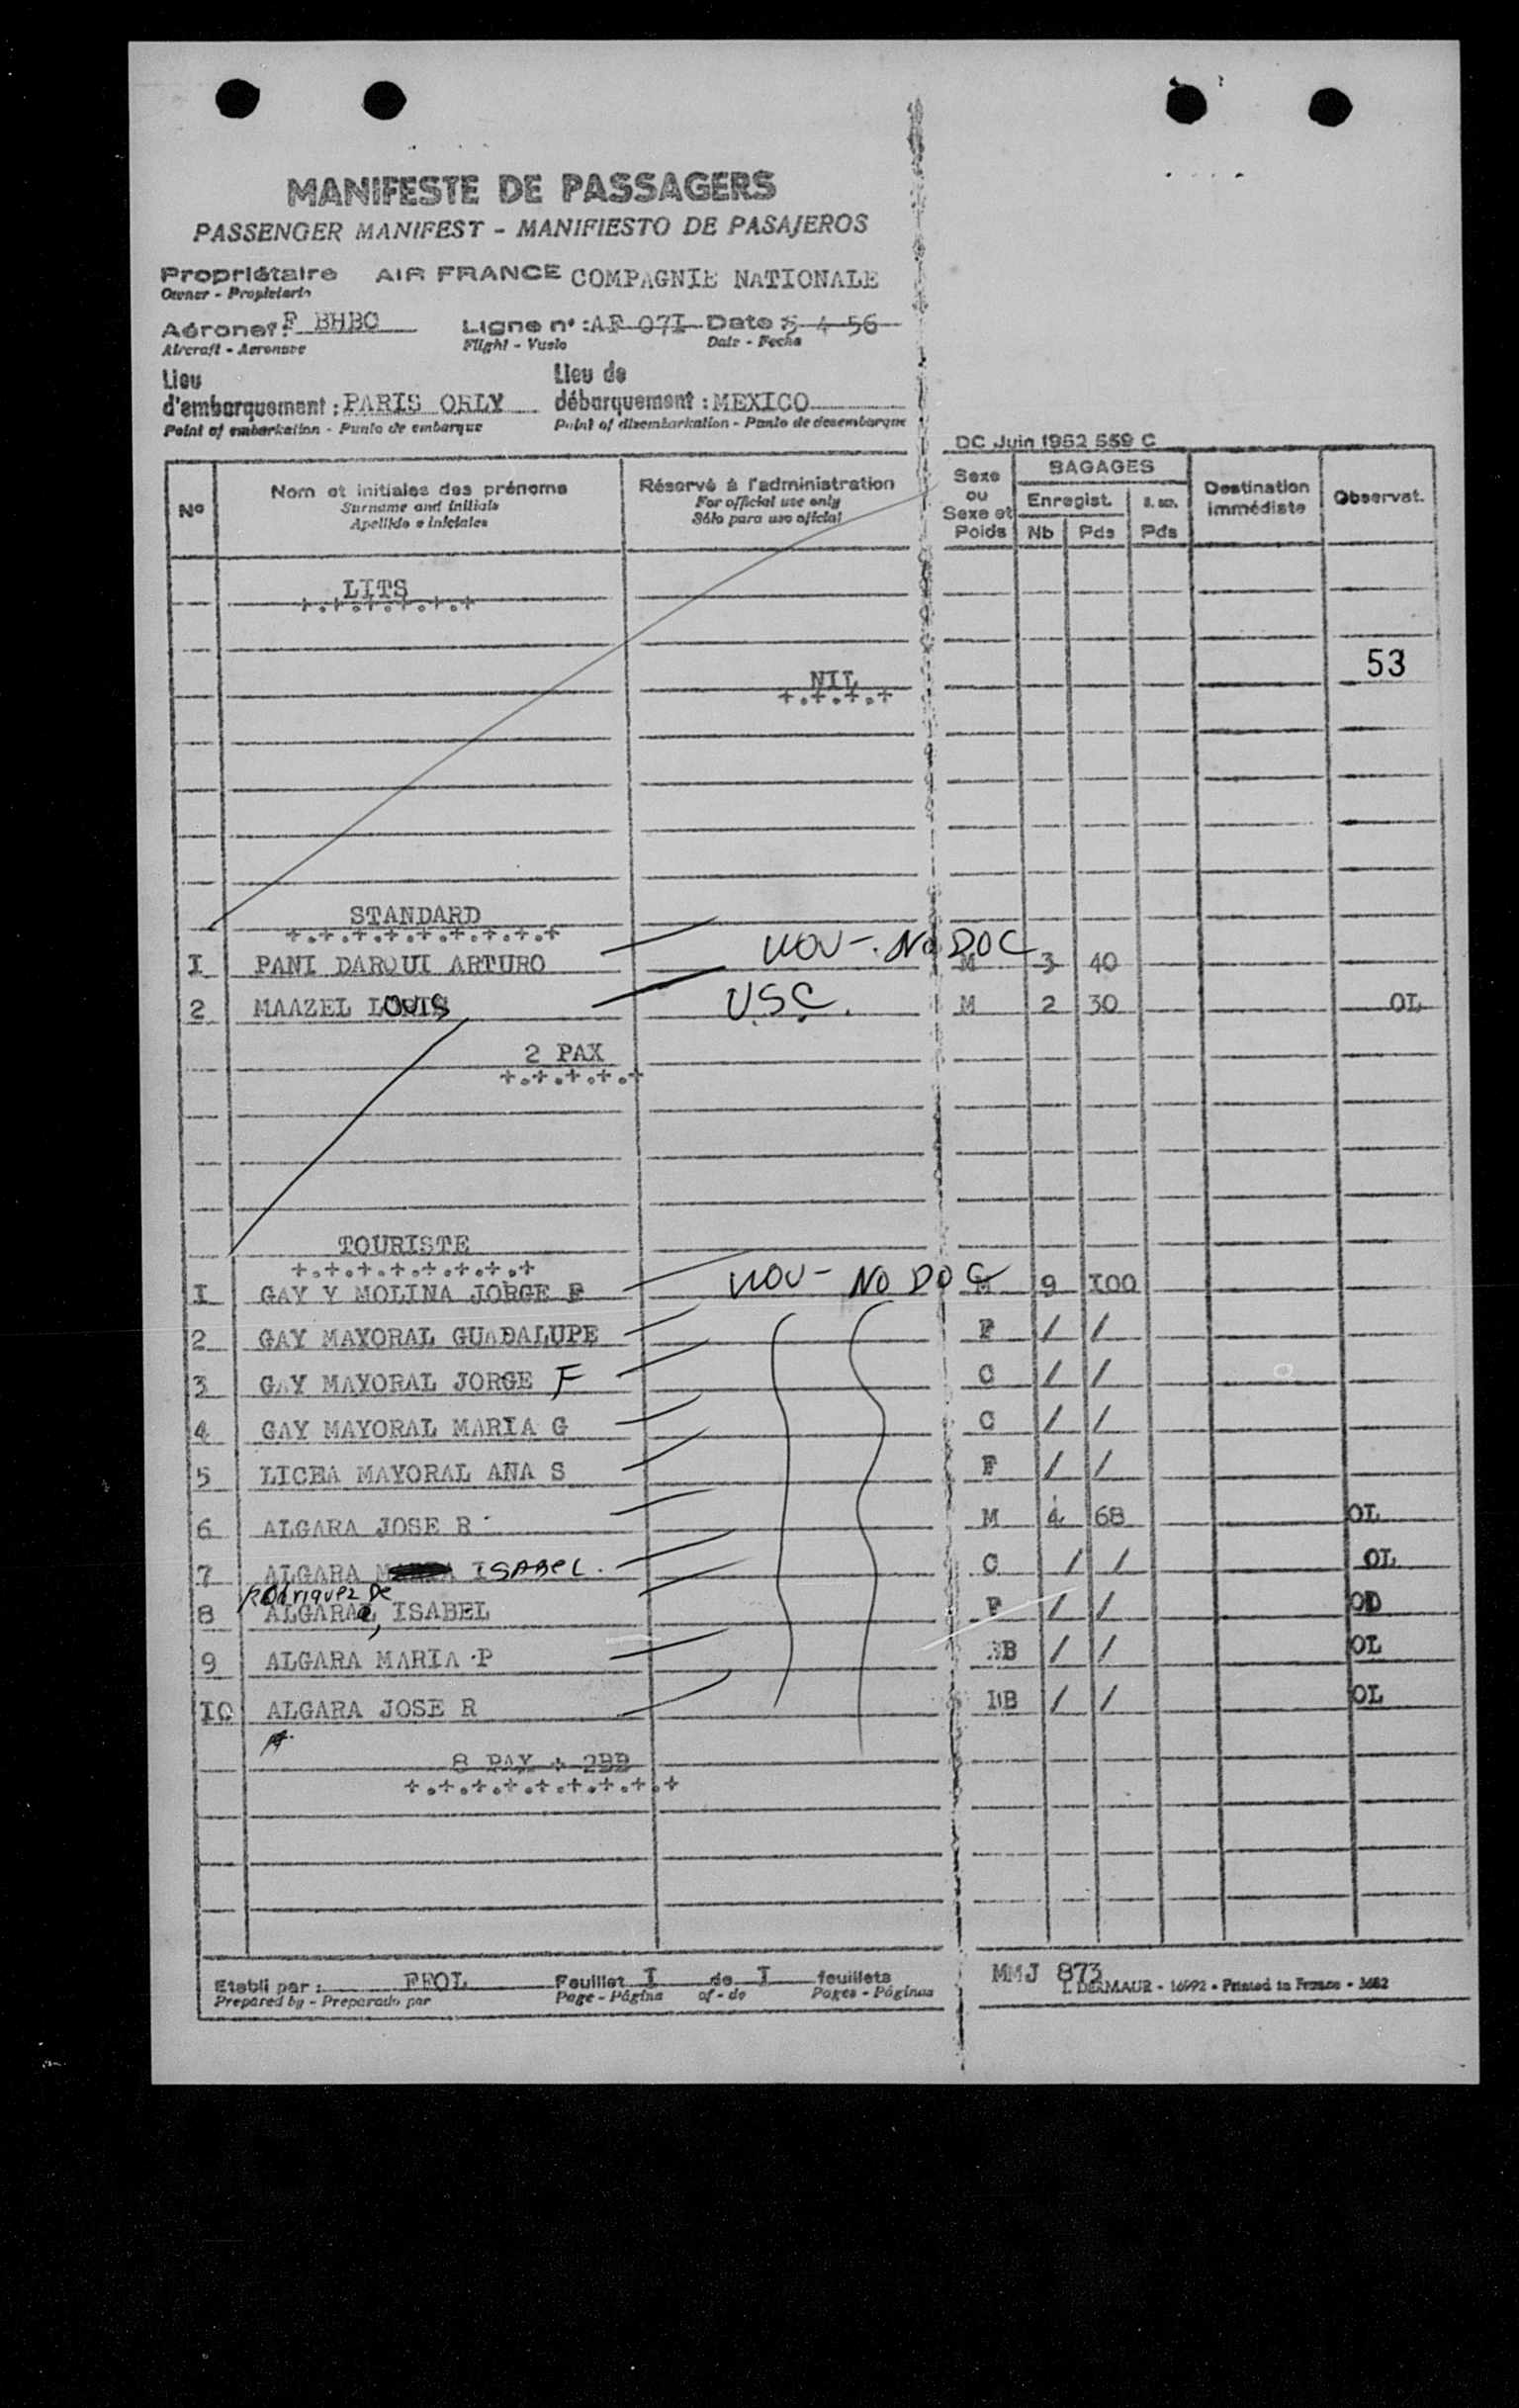 MANIFESTE DE PASSAGERS
PASSENGER MANIFEST - MANIFIESTO DE PASAJEROS
Propriétaire AIR FRANCE COMPAGNIE NATIONALE
Owner - Propietario
Aéronef: F BHBC Ligne n°: AF 07I Date 5 4 56
Aircraft - Aeronave Flight - Vuelo Date - Fecha
Lieu d'embarquement: PARIS ORLY Lieu de débarquement: MEXICO
Point of embarkation - Punto de embarque Point of disembarkation - Punto de desembarque
DC Juin 1952 559 C
Nº Nom et initiales des prénoms Réservé à l'administration Sexe ou Sexe et Poids BAGAGES Destination immédiate Observat.
Surname and initials For official use only Enregist.
Apellido e iniciales Sólo para uso oficial Nb Pds Pds
LITS
+.+.+.+.+.+
53
NIL
+.+.+.+
STANDARD
+.+.+.+.+.+.+.+.+
I PANI DARQUI ARTURO NOV-. No DOC M 3 40
2 MAAZEL LOUIS U.S.C. M 2 30 OL
2 PAX
+.+.+.+.+
TOURISTE
+.+.+.+.+.+.+.+
I GAY Y MOLINA JORGE F NOV- NO DOC M 9 I00
2 GAY MAYORAL GUADALUPE F / /
3 GAY MAYORAL JORGE F C / /
4 GAY MAYORAL MARIA G C / /
5 LICEA MAYORAL ANA S F / /
6 ALGARA JOSE R M 4 68 OL
7 ALGARA ISABEL. C / / OL
Rodriguez De
8 ALGARA, ISABEL F / /
9 ALGARA MARIA P BB / / OL
I0 ALGARA JOSE R BB / / OL
8 PAX + 2BB
+.+.+.+.+.+.+.+.+
Etabli par: Feuillet I de I feuillets MMJ 873
Prepared by - Preparado por Page - Página of - de Pages - Páginas I. DERMAUR - 16992 - Printed in France - 3682